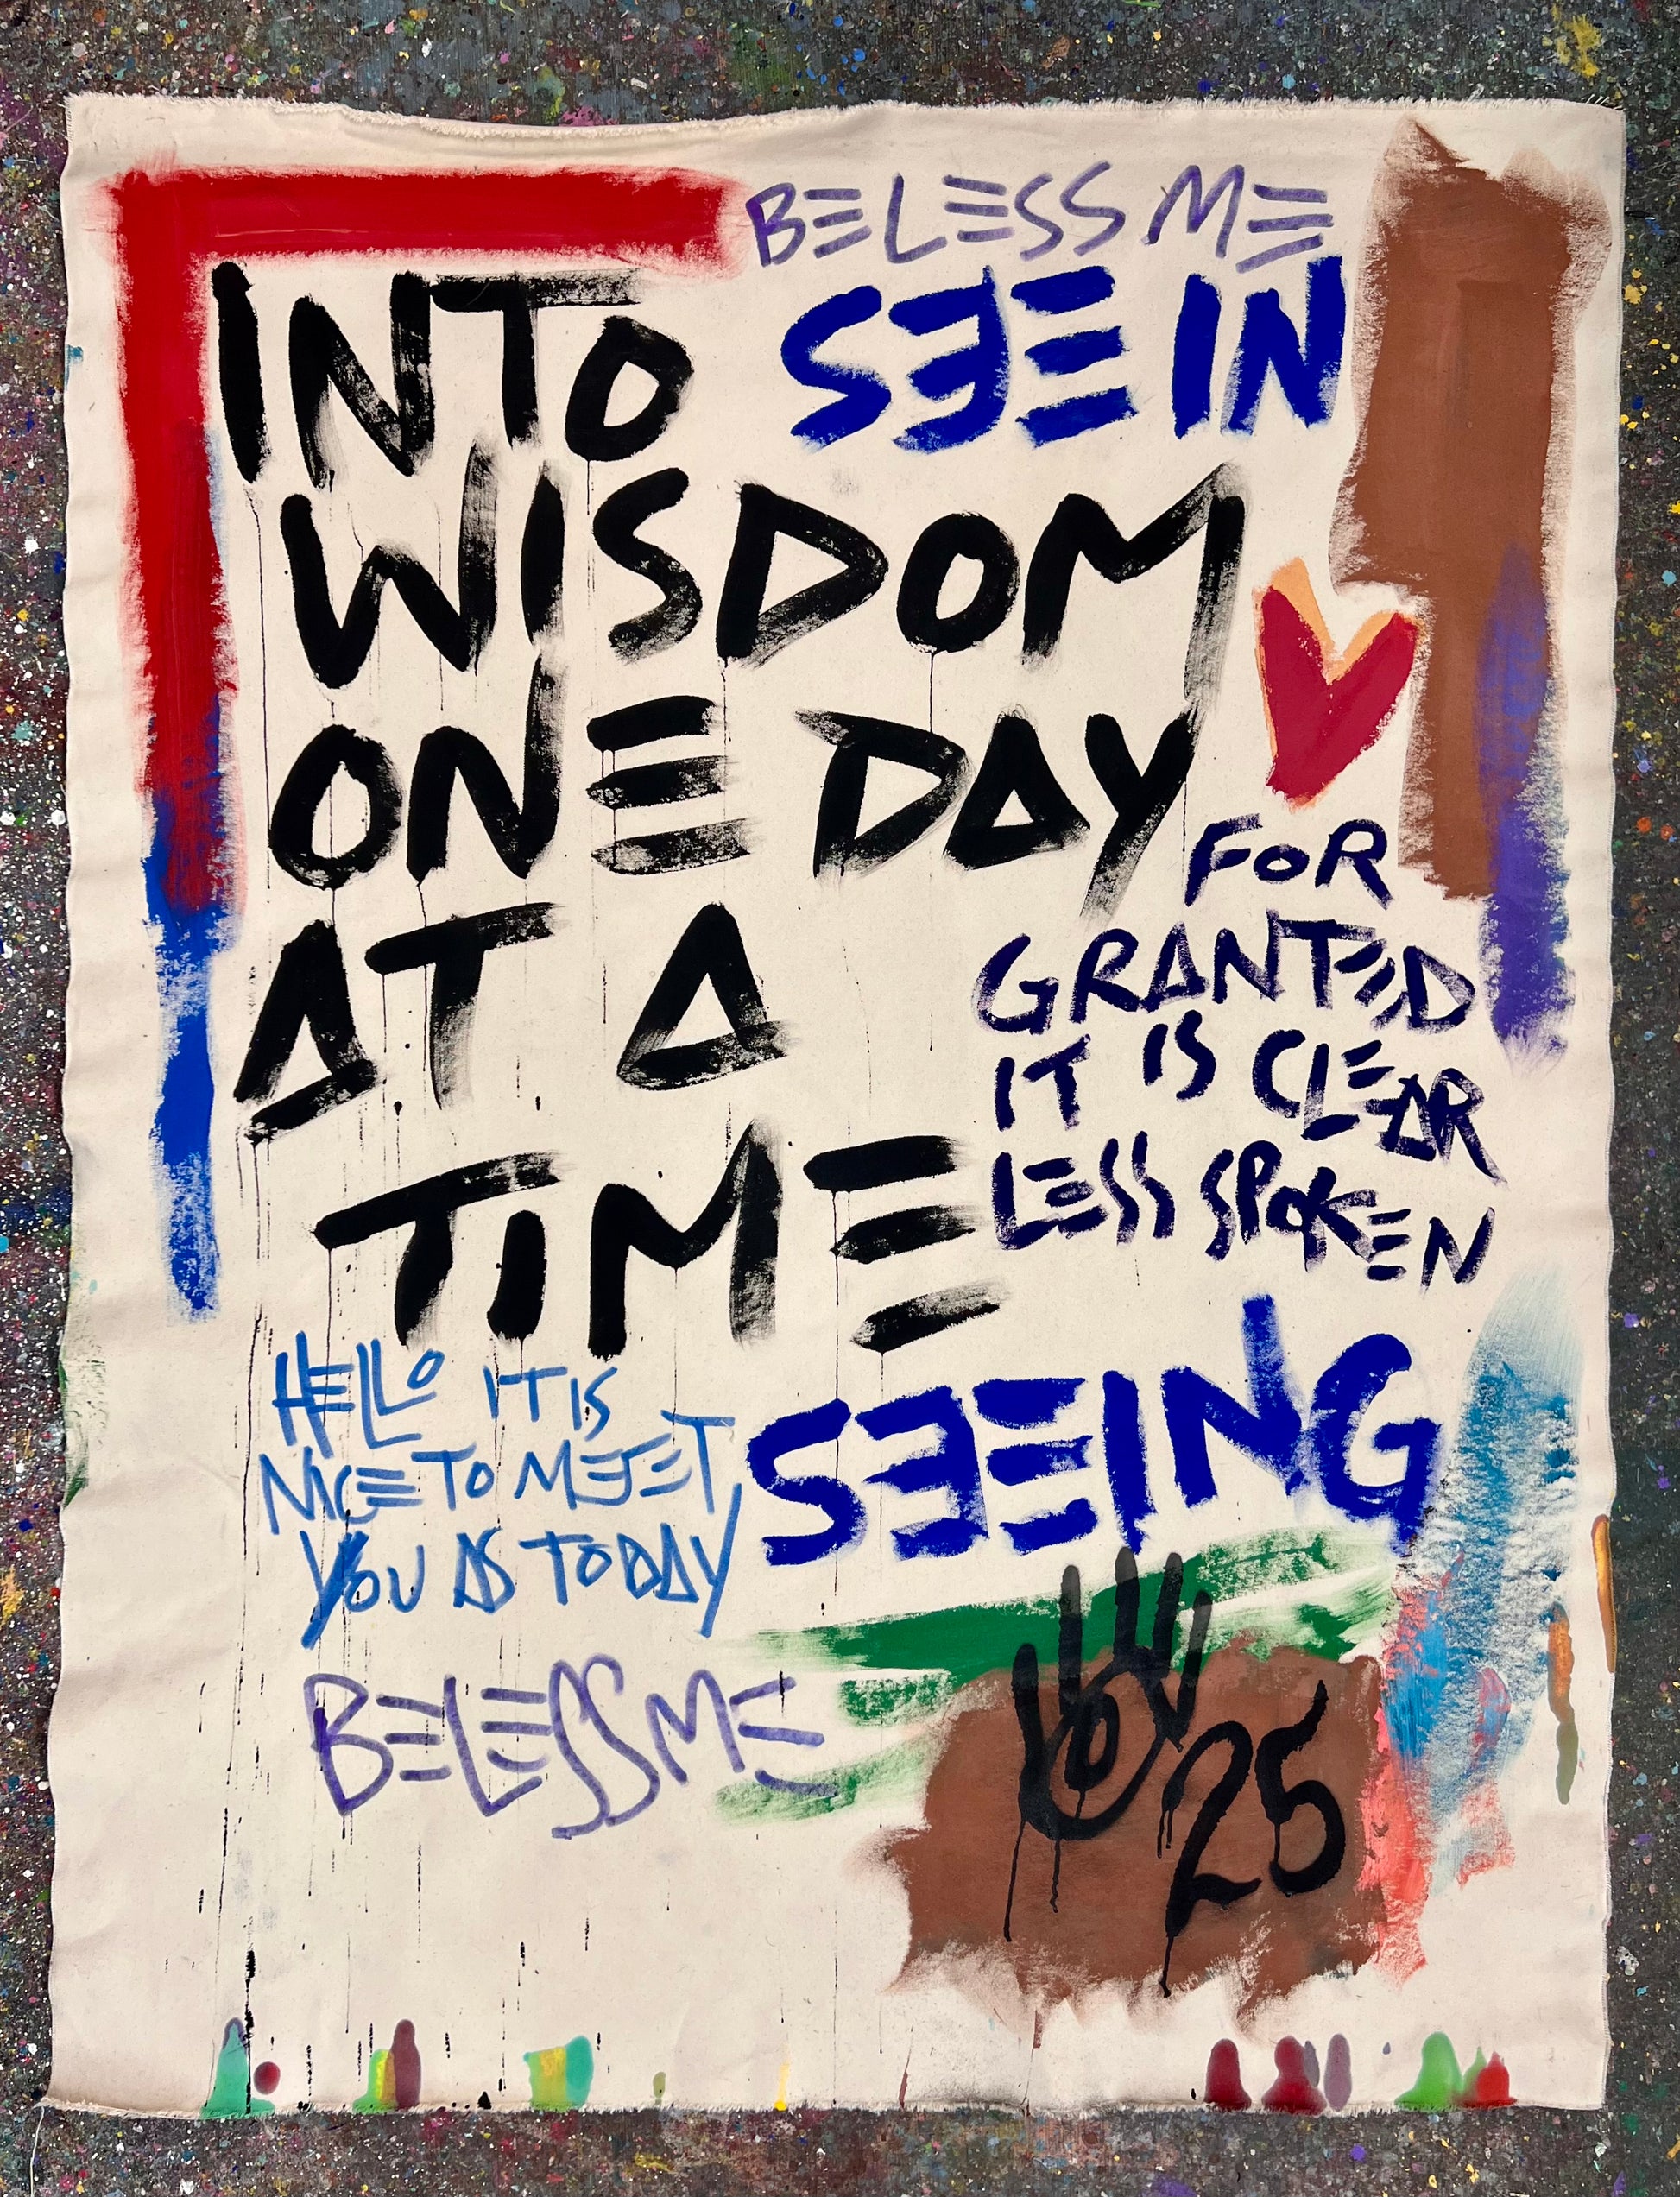 BELESS ME
INTO
SEE IN
WISDOM
ONE DAY
FOR
GRANTED
AT A
IT IS CLEAR
TIME
LESS SPOKEN
HELLO IT IS
NICE TO MEET
YOU AS TODAY
SEEING
BELESS ME
25